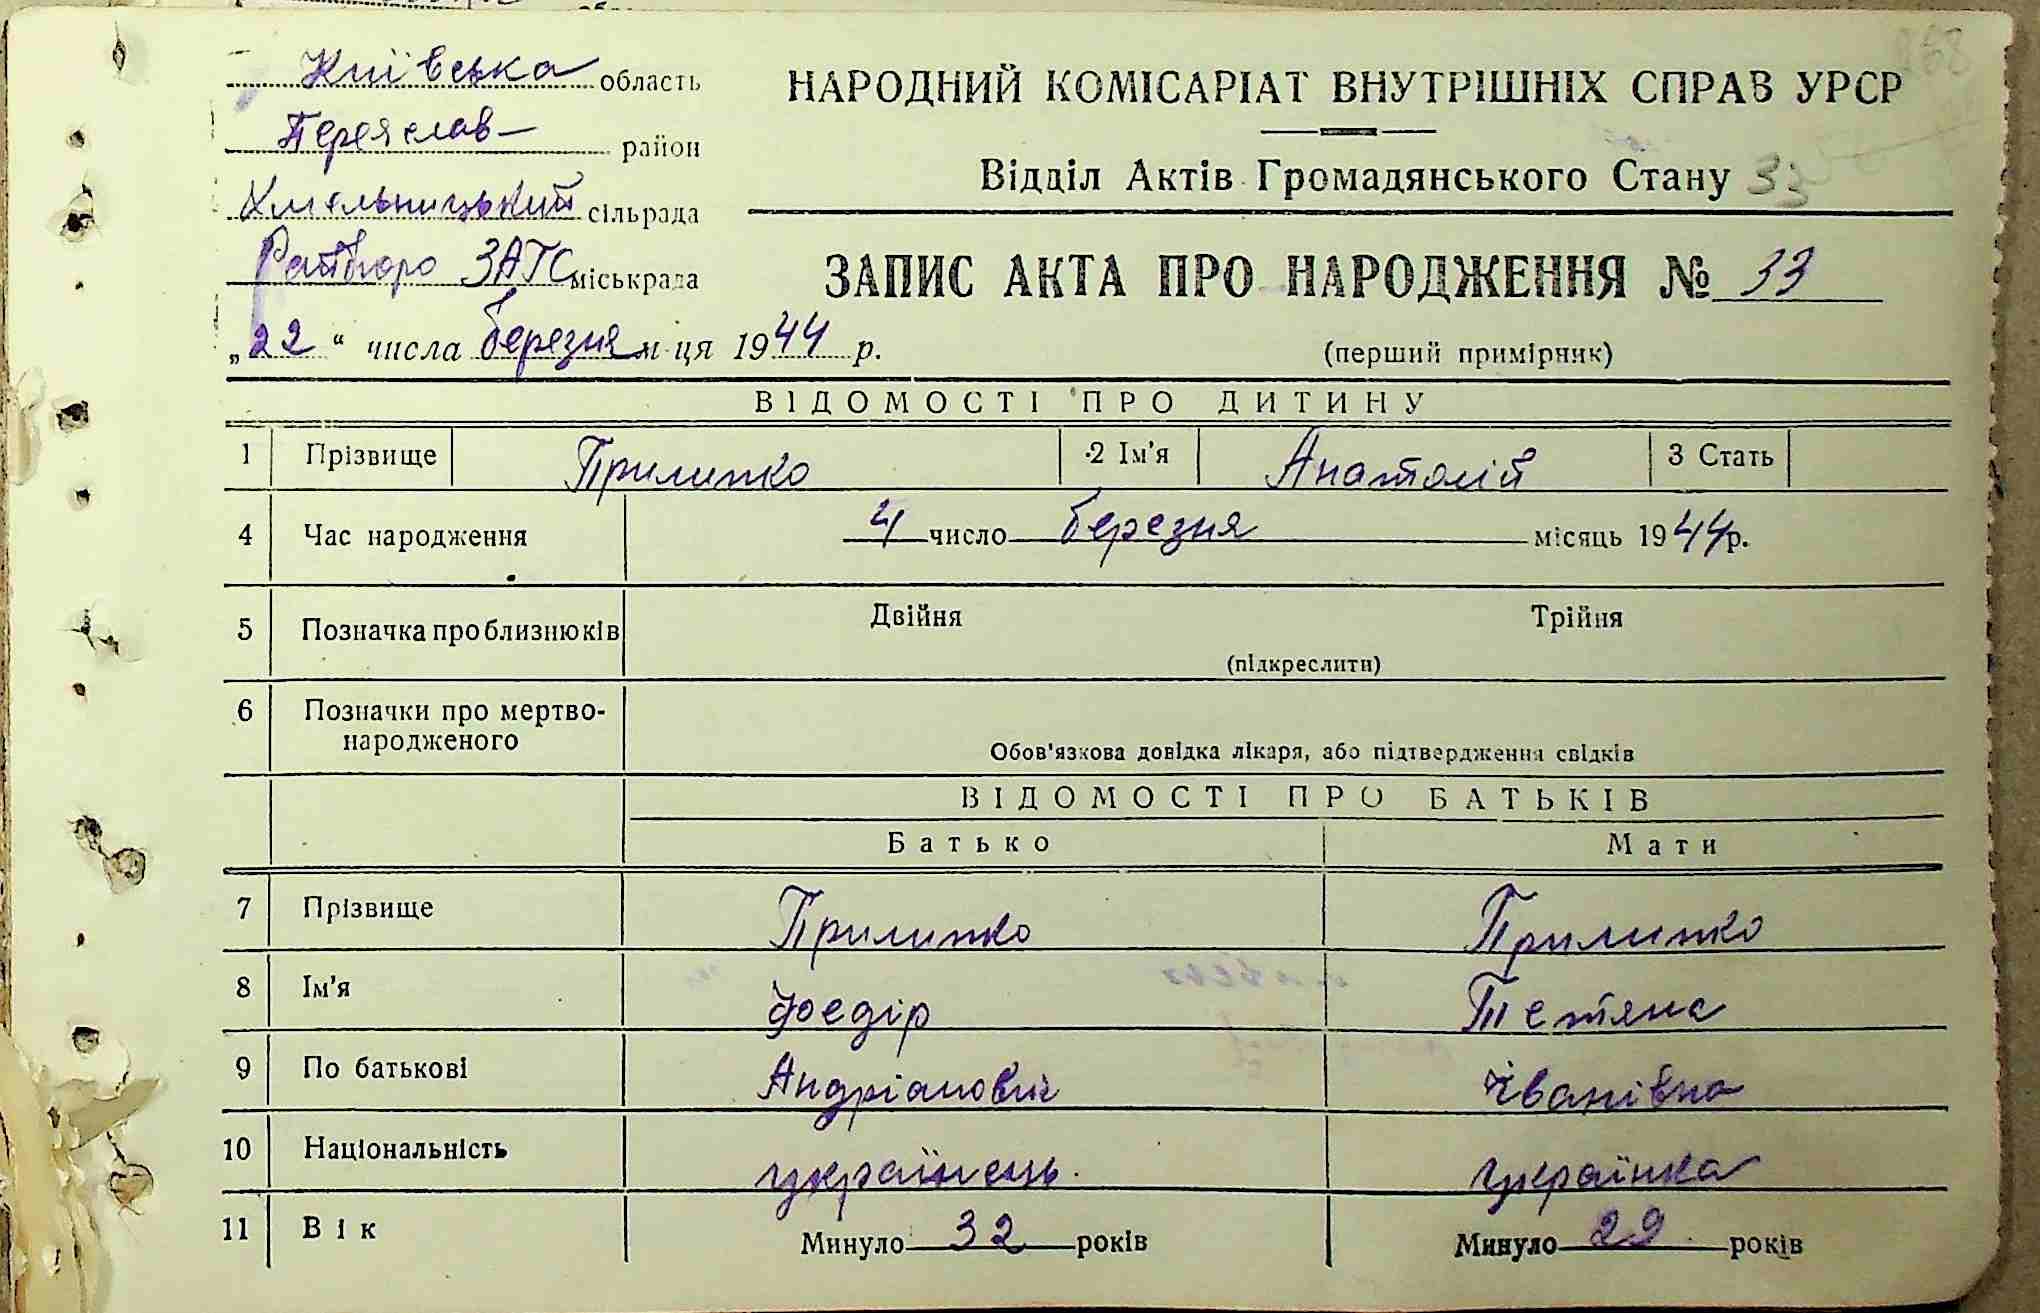 Київська область
Переяслав- район
Хмельницький сільрада
Ратбюро ЗАГС міськрада
„22“ числа березня м-ця 1944 р.
868
НАРОДНИЙ КОМІСАРІАТ ВНУТРІШНІХ СПРАВ УРСР
Відділ Актів Громадянського Стану 33
ЗАПИС АКТА ПРО НАРОДЖЕННЯ № 33
(перший примірник)
ВІДОМОСТІ ПРО ДИТИНУ
1 Прізвище Прилипко 2 Ім'я Анатолій 3 Стать
4 Час народження 4 число березня місяць 1944 р.
5 Позначка про близнюків Двійня Трійня
(підкреслити)
6 Позначки про мертво-
народженого
Обов'язкова довідка лікаря, або підтвердження свідків
ВІДОМОСТІ ПРО БАТЬКІВ
Батько Мати
7 Прізвище Прилипко Прилипко
8 Ім'я Федір Тетяна
9 По батькові Андріанович Іванівна
10 Національність українець. українка
11 Вік Минуло 32 років Минуло 29 років